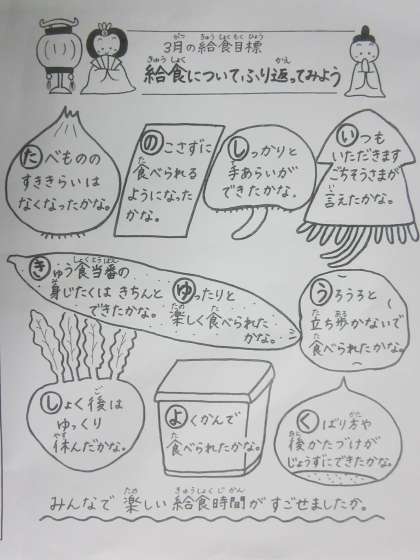 3月の給食目標
給食について、ふり返ってみよう
たべものの
すききらいは
なくなったかな。
のこさずに
食べられる
ようになった
かな。
しっかりと
手あらいが
できたかな。
いつも
いただきます
ごちそうさまが
言えたかな。
きゅう食当番の
身じたくは きちんと
できたかな。
ゆったりと
楽しく食べられた
かな。
うろうろと
立ち歩かないで
食べられたかな。
しょく後は
ゆっくり
休んだかな。
よくかんで
食べられたかな。
くばり方や
後かたづけが
じょうずにできたかな。
みんなで 楽しい 給食時間が すごせましたか。